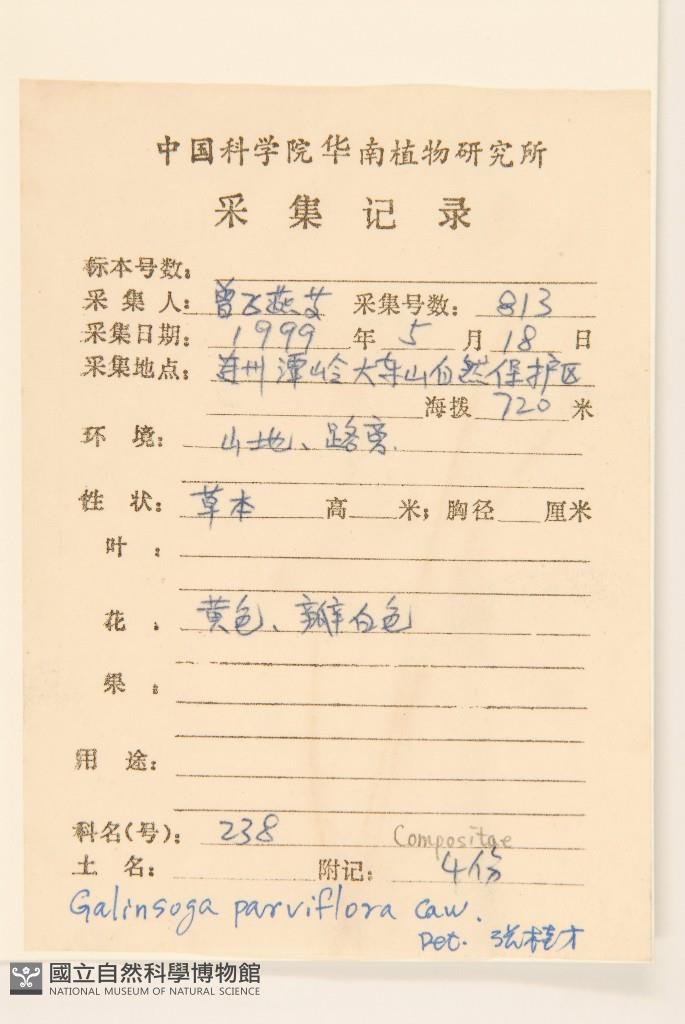 中国科学院华南植物研究所
采集记录
标本号数:
采集人: 曾飞燕 采集号数: 813
采集日期: 1999 年 5 月 18 日
采集地点: 连州潭岭大东山自然保护区
海拨 720 米
环境: 山地、路旁.
性状: 草本 高 米; 胸径 厘米
叶:
花: 黄色、瓣白色
果:
用途:
科名(号): 238 Compositae
土名: 附记: 4份
Galinsoga parviflora Cav.
Det. 张桂才
國立自然科學博物館
NATIONAL MUSEUM OF NATURAL SCIENCE